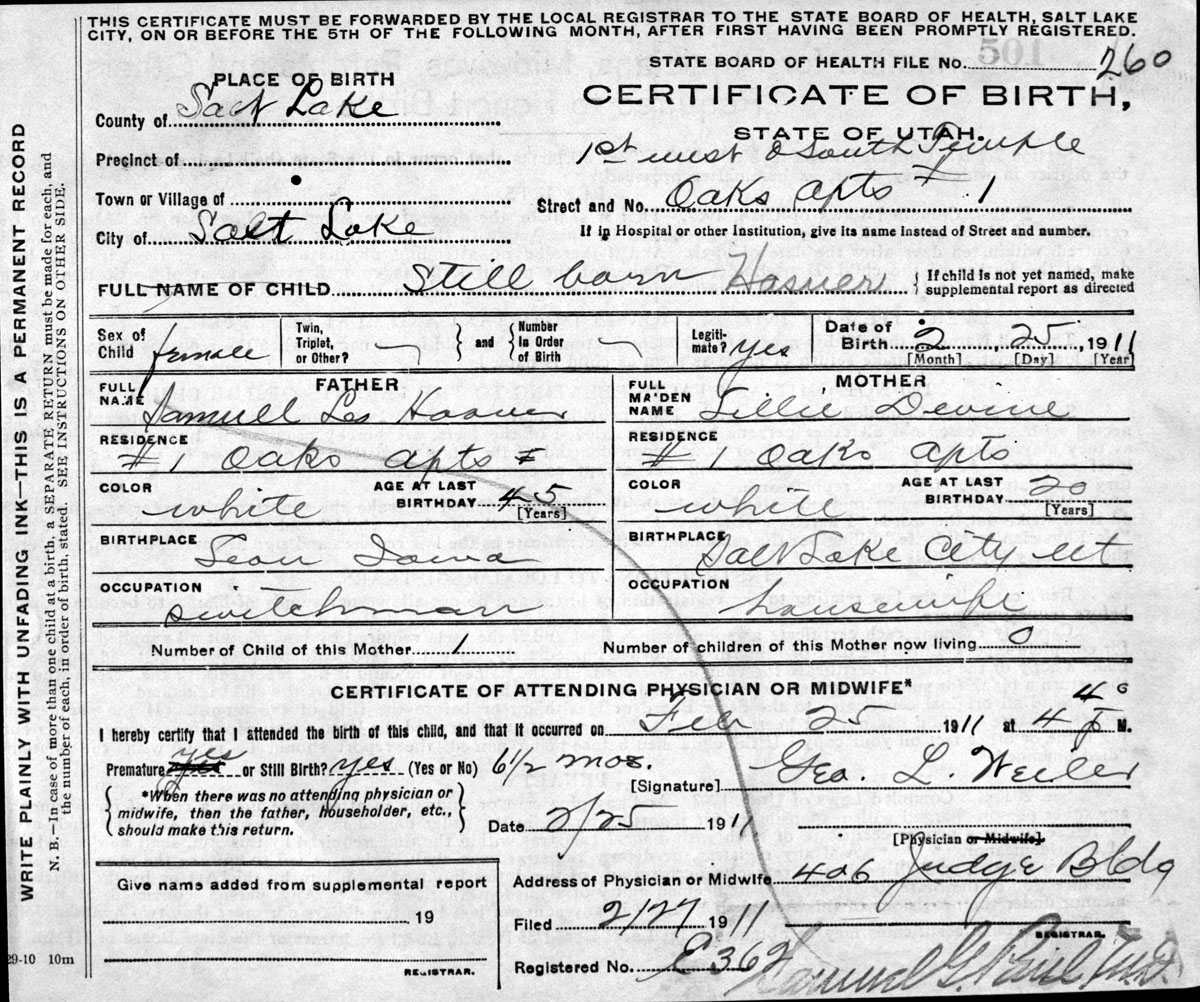 THIS CERTIFICATE MUST BE FORWARDED BY THE LOCAL REGISTRAR TO THE STATE BOARD OF HEALTH, SALT LAKE
CITY, ON OR BEFORE THE 5TH OF THE FOLLOWING MONTH, AFTER FIRST HAVING BEEN PROMPTLY REGISTERED.
STATE BOARD OF HEALTH FILE No. 260
PLACE OF BIRTH
CERTIFICATE OF BIRTH,
STATE OF UTAH.
County of Salt Lake
Precinct of
1st west & South Temple
Town or Village of
Street and No. Oaks apts # 1
City of Salt Lake
If in Hospital or other Institution, give its name instead of Street and number.
FULL NAME OF CHILD Still born Hoover { If child is not yet named, make
supplemental report as directed
Sex of Child female
Twin, Triplet, or Other? } and { Number in Order of Birth
Legitimate? yes
Date of Birth 2 25, 1911
[Month] [Day] [Year]
FATHER
FULL NAME Samuel Les Hoover
RESIDENCE
# 1 Oaks apts
COLOR white
AGE AT LAST BIRTHDAY 45
[Years]
BIRTHPLACE
Iowa
OCCUPATION
switchman
MOTHER
FULL MAIDEN NAME Lillie Devine
RESIDENCE
# 1 Oaks apts
COLOR white
AGE AT LAST BIRTHDAY 20
[Years]
BIRTHPLACE Salt Lake City Ut
OCCUPATION
housewife
Number of Child of this Mother 1
Number of children of this Mother now living 0
CERTIFICATE OF ATTENDING PHYSICIAN OR MIDWIFE*
I hereby certify that I attended the birth of this child, and that it occurred on Feb 25 1911 at 4 M.
Premature yes or Still Birth? yes (Yes or No) 6 1/2 mos.
[Signature] Geo. L. Weiler
{ *When there was no attending physician or
midwife, then the father, householder, etc.,
should make this return. }
Date 2/25 1911
[Physician or Midwife]
Address of Physician or Midwife 406 Judge Bldg
Give name added from supplemental report
19
REGISTRAR.
Filed 2/27 1911
REGISTRAR.
Registered No. E362
Samuel G. M.D.
29-10 10m
WRITE PLAINLY WITH UNFADING INK—THIS IS A PERMANENT RECORD
N. B.—In case of more than one child at a birth, a SEPARATE RETURN must be made for each, and
the number of each, in order of birth, stated. SEE INSTRUCTIONS ON OTHER SIDE.